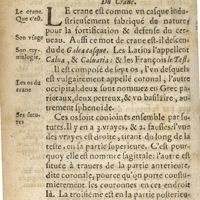 Du Crane.
Le crane.
Que c'est.
Son vsage
Son ety-
mologie.
Les os du
crane
Ses sutu-
res
LE crane est comme vn casque indu-
strieusement fabriqué de nature
pour la fortification & defense du cer-
ueau. Aussi ce mot de crane est-il descendu
de Galea casque. Les Latins l'appellent
Calua, & Caluaria: & les François le Test.
Il est composé de sept os, l'vn est
vulgairement appelé coronal, l'autre
occipital: deux sont nommez en Grec pa-
rietaux, deux petreux, & vn basilaire, au-
trement sphenoïde.
Ces os sont conioints ensemble par su-
tures. Il y en a vrayes, & fausses: l'vne
des vrayes est droite, tirant du long de la
teste, en sa partie superieure. C'est pour-
quoy elle est nommée sagittale: l'autre est
située à trauers de la partie anterieure,
dite coronale, pource qu'on porte cou-
stumierement les couronnes en cet endroit
là. La troisiéme est en la partie posterieure,